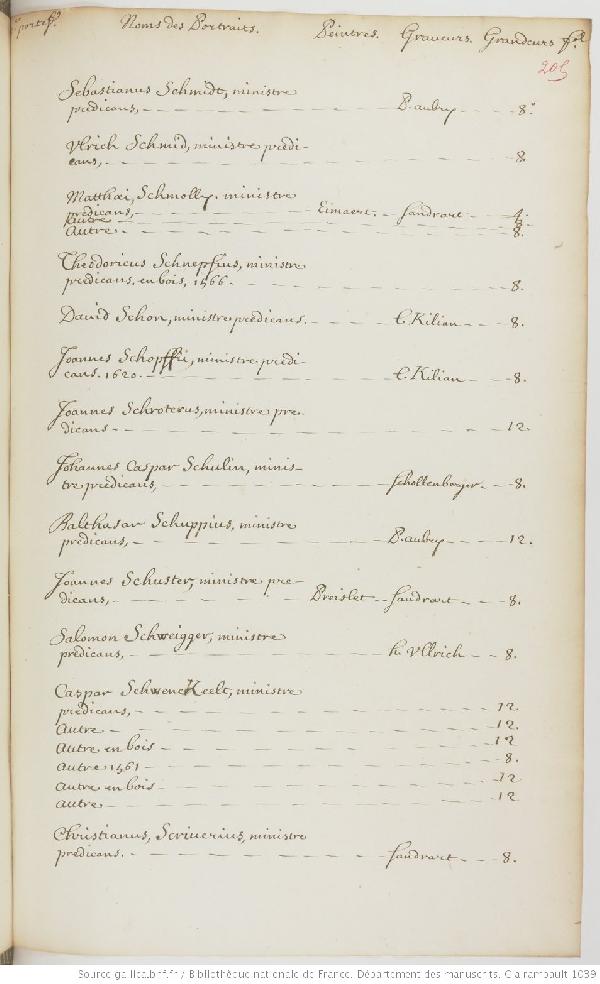 portef.^o Noms des Portraits. Peintres. Graveurs. Grandeurs f.^o
205
Sebastianus Schmidt, ministre
predicans, P. aubry 8.^o
Vlrich Schmid, ministre predi-
cans, 8.
Matthæi, Schmolly. ministre
predicans, Eimaert. Sandrart 4.
Autre 8.
Autre 8.
Theodoricus Schnepfius, ministre
predicans. en bois, 1566. 8.
David Schon, ministre predicans. L. Kilian 8.
Joannes Schopffii, ministre predi-
cans. 1620. L. Kilian 8.
Joannes Schroterus, ministre pre-
dicans 12.
Johannes Caspar Schulin, minis-
tre predicans, Schollenberger. 8.
Balthasar Schuppius, ministre
predicans, P. aubry 12.
Joannes Schuster, ministre pre-
dicans, Preislet Sandrart 8.
Salomon Schweigger, ministre
predicans, h. Vllrich 8.
Caspar SchwencKeelt, ministre
predicans, 12.
Autre 12.
Autre en bois 12
Autre 1561 8.
Autre en bois 12
Autre 12
Christianus, Scriuerius, ministre
predicans. Sandrart 8.
Source gallica.bnf.fr / Bibliothèque nationale de France. Département des manuscrits. Clairambault 1039